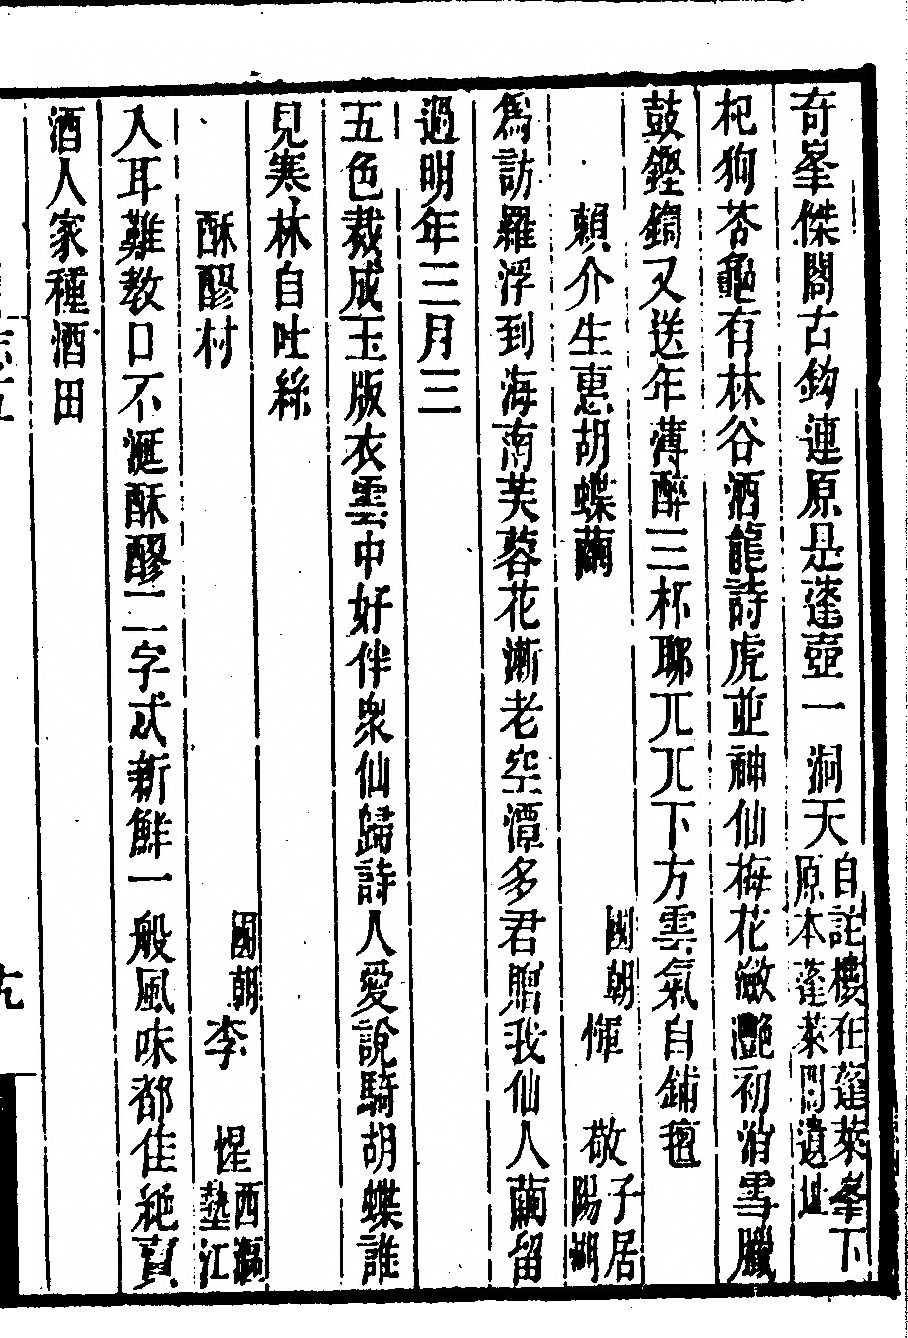 奇峯傑閣古鈎連原是蓬壺一洞天自註樓在蓬萊峯下原本蓬萊閣遺址
杞狗苓龜有林谷酒龍詩虎並神仙梅花瀲灩初消雪臘
鼓鏗鍧又送年薄醉三杯聊兀兀下方雲氣自鋪氊
賴介生惠胡蝶繭 國朝惲 敬子居陽湖
爲訪羅浮到海南芙蓉花漸老空潭多君贈我仙人繭留
過明年三月三
五色裁成玉版衣雲中好伴衆仙歸詩人愛說騎胡蝶誰
見寒林自吐絲
酥醪村 國朝李 惺西漚墊江
入耳難教口不涎酥醪二字忒新鮮一般風味都佳絶賣
酒人家種酒田
九